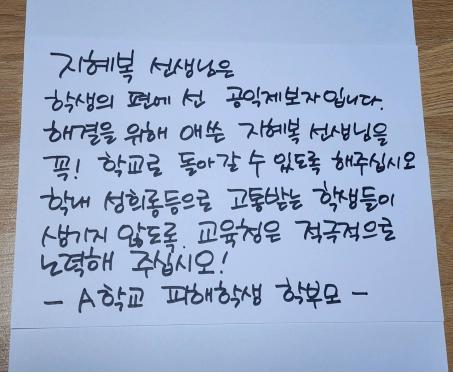 지혜복 선생님은
학생의 편에 선 공익제보자입니다.
해결을 위해 애쓴 지혜복 선생님을
꼭! 학교로 돌아갈 수 있도록 해주십시오
학내 성희롱등으로 고통받는 학생들이
생기지 않도록. 교육청은 적극적으로
노력해 주십시오!
- A학교 피해학생 학부모 -